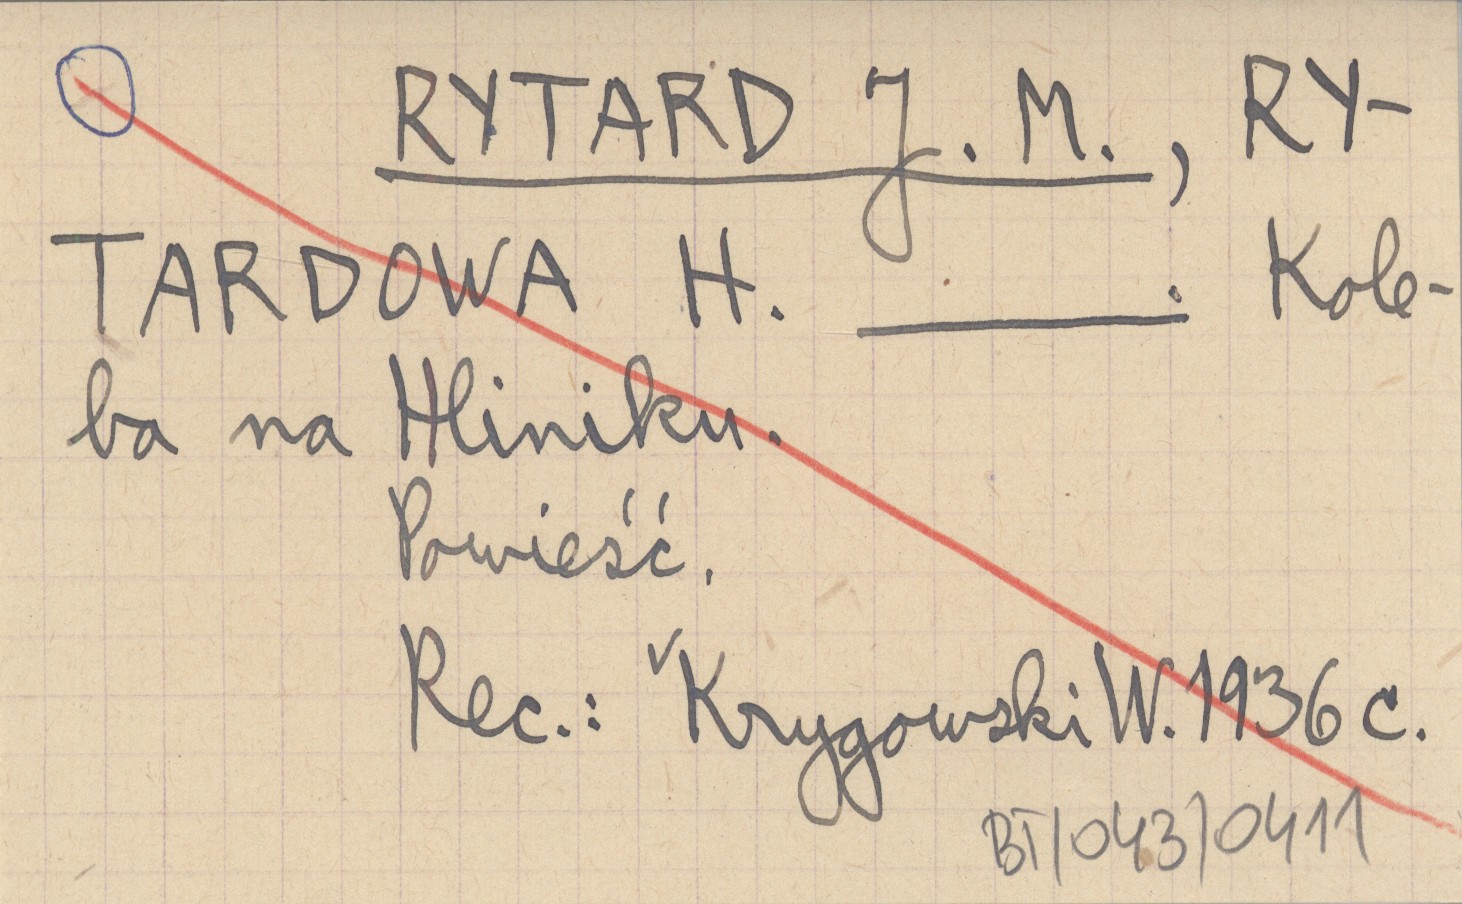 RYTARD J. M., RY-
TARDOWA H. ______: Kole-
ba na Hliniku.
Powieść.
Rec.: Krygowski W. 1936 c.
BT/043/0411